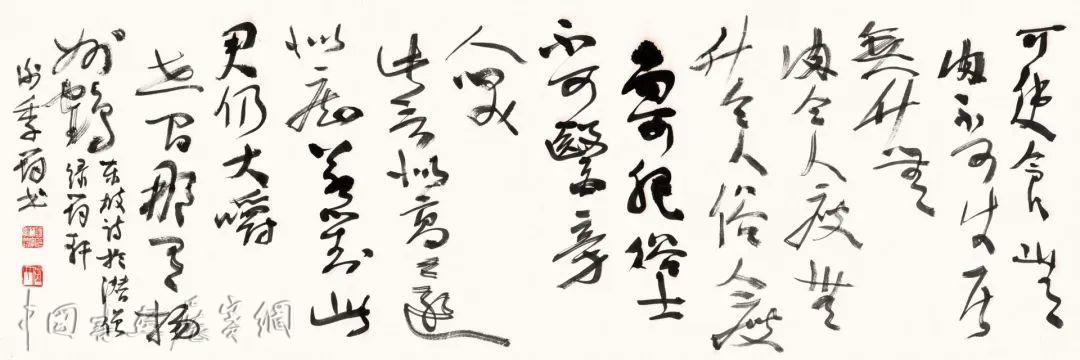 可使食無
肉不可使居
無竹無
肉令人瘦無
竹令人俗人瘦
尚可肥俗士
不可醫旁
人笑
此言似高還
似痴若對此
君仍大嚼
世間那有揚
州鶴
東坡詩於潜僧
绿筠軒
谢季筠書
中國書畫展賽網